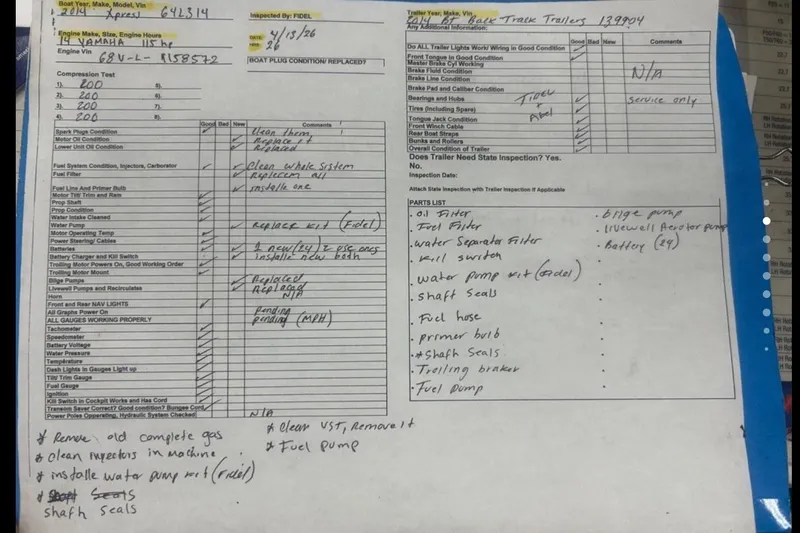 Boat Year, Make, Model, Vin
2014 Xpress 64L314
Engine Make, Size, Engine Hours
14 YAMAHA 115 hp
Engine Vin
68V-L-
Compression Test
1). 200 5).
2). 200 6).
3). 200 7).
4). 200 8).
Inspected By: FIDEL
DATE: 4/13/26
26
BOAT PLUG CONDITION/ REPLACED?
Good Bad New Comments
Spark Plugs Condition Clean them,
Motor Oil Condition Replace it
Lower Unit Oil Condition Replaced
Fuel System Condition, Injectors, Carborator Clean whole sistem
Fuel Filter Replacem all
Fuel Line And Primer Bulb installe one
Motor Tilt/ Trim and Ram
Prop Shaft
Prop Condition
Water Intake Cleaned
Water Pump Replace kit (Fidel)
Motor Operating Temp
Power Steering/ Cables
Batteries 2 new (24) 2 use ones
Battery Charger and Kill Switch installe new both
Trolling Motor Powers On, Good Working Order
Trolling Motor Mount
Bilge Pumps Replaced
Livewell Pumps and Recirculates Replaced
Horn N/A
Front and Rear NAV LIGHTS
All Graphs Power On Pending
ALL GAUGES WORKING PROPERLY pending (MPH)
Tachometer
Speedometer
Battery Voltage
Water Pressure
Temperature
Dash Lights in Gauges Light up
Tilt/ Trim Gauge
Fuel Gauge
Ignition
Kill Switch in Cockpit Works and Has Cord
Transom Saver Correct? Good condition? Bungee Cord
Power Poles Opperating, Hydraulic System Checked N/A
* Remove old complete gas
* clean injectors in machine
* installe water pump kit (Fidel)
* Seals
shafh seals
* Clean VST, Remove it
* Fuel pump
Trailer Year, Make, Vin:
2014 BT Back Track Trailers 139904
Any Additional Information:
Good Bad New Comments
Do ALL Trailer Lights Work/ Wiring in Good Condition
Front Tongue in Good Condition
Master Brake Cyl Working
Brake Fluid Condition N/A
Brake Line Condition
Brake Pad and Caliber Condition
Bearings and Hubs FIDEL service only
Tires (Including Spare) +
Tongue Jack Condition
Front Winch Cable
Rear Boat Straps
Bunks and Rollers
Overall Condition of Trailer
Does Trailer Need State Inspection? Yes.
No.
Inspection Date:
Attach State Inspection with Trailer Inspection if Applicable
PARTS LIST
. oil Filter
. Fuel Filter
. water Separator Filter
. Kill switch
. water pump kit (Fidel)
. shaft Seals
. Fuel hose
. primer bulb
. *Shafh Seals
. Trolling braker
. Fuel pump
. bilge pump
. Livewell Aerotor pump
. Battery (24)